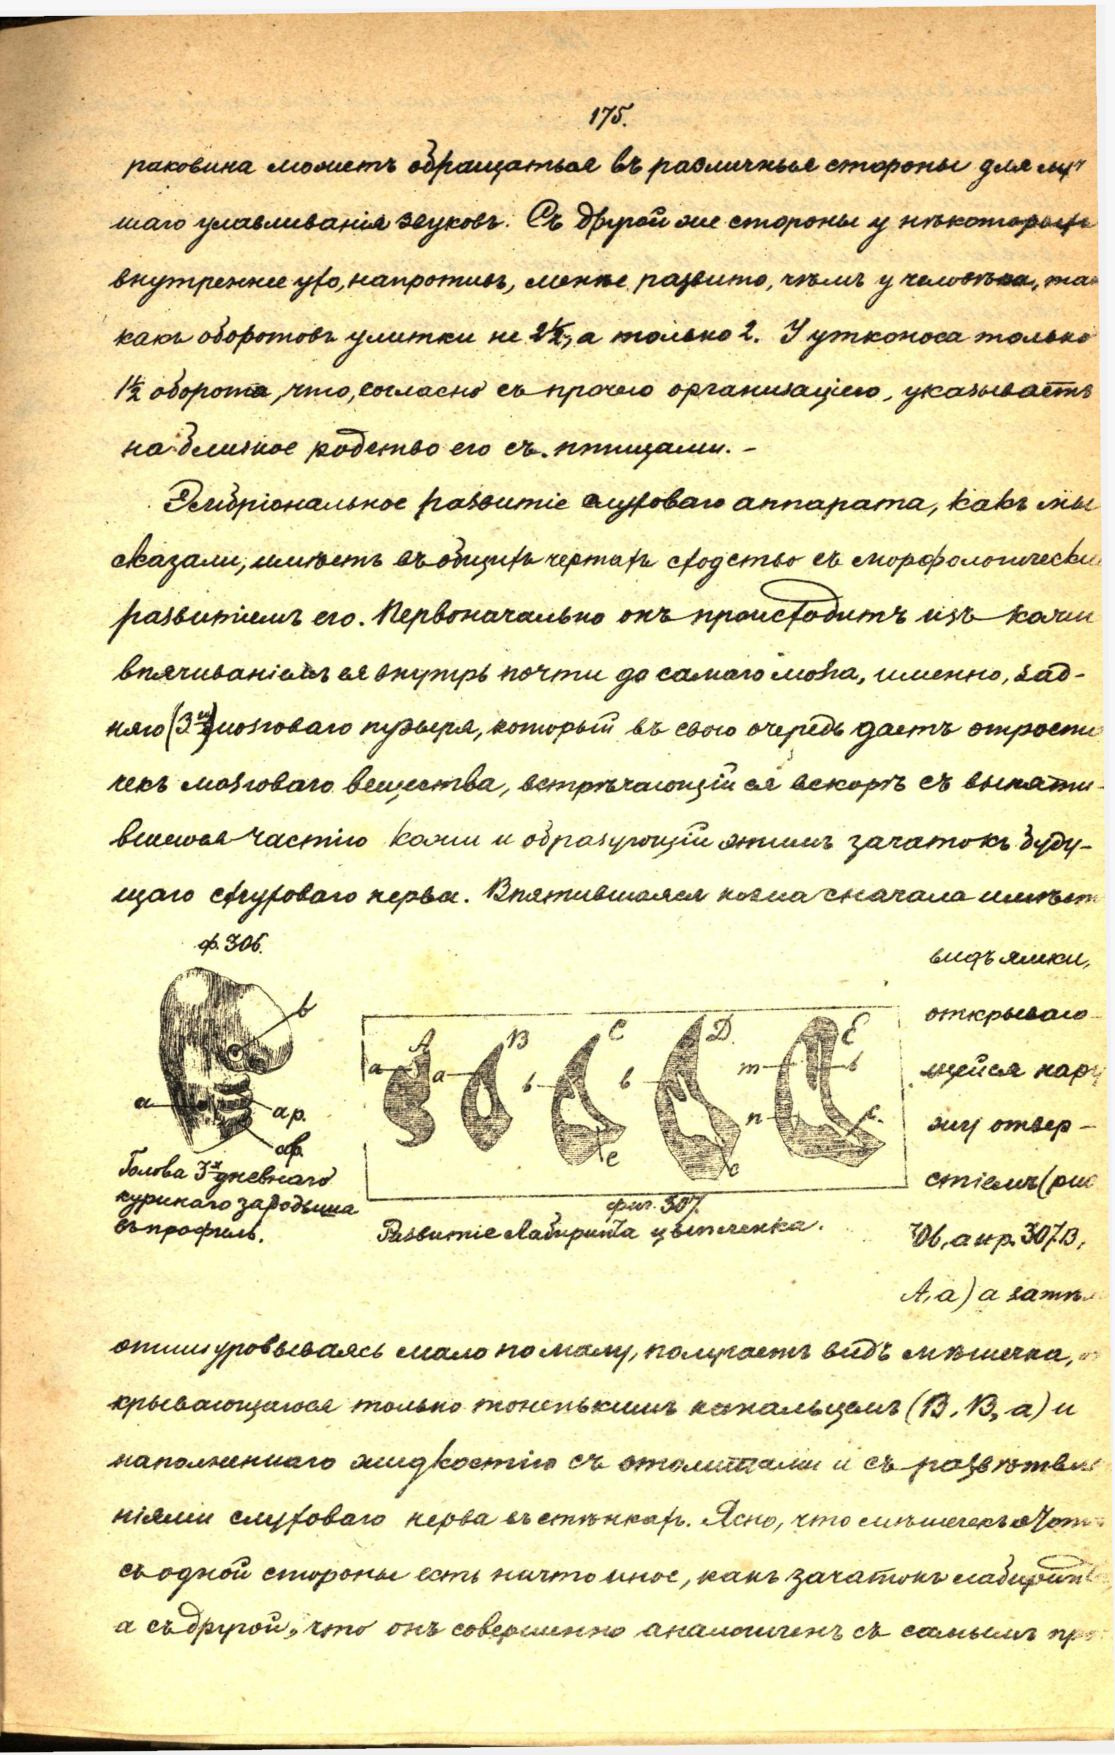 175.
раковина можетъ обращаться въ различныя стороны для луч
шаго улавливанія звуковъ. Съ другой же стороны у нѣкоторыхъ
внутреннее ухо, напротивъ, менѣе развито, чѣмъ у человѣка, так
какъ оборотовъ улитки не 2½, а только 2. У утконоса только
1½ оборота, что, согласно съ прочею организаціею, указываетъ
на близкое родство его съ птицами. –
Эмбріональное развитіе слуховаго аппарата, какъ мы
сказали, имѣетъ въ общихъ чертахъ сходство съ морфологически
развитіемъ его. Первоначально онъ происходитъ изъ кожи
впячиваніемъ ея внутрь почти до самаго мозга, именно, зад-
няго (3го) мозговаго пузыря, который въ свою очередь даетъ отрости
чекъ мозговаго вещества, встрѣчающійся вскорѣ съ впяти-
вшеюся частію кожи и образующій этимъ зачатокъ буду-
щаго слуховаго нерва. Впятившаяся кожа сначала имѣетъ
видъ ямки,
открываю-
щейся нару
жу отвер-
стіемъ (рис
306, а и р. 307 В,
А, а) а затѣм
отшнуровываясь мало по малу, получаетъ видъ мѣшечка, от
крывающагося только тоненькимъ канальцемъ (В, В, а) и
наполненнаго жидкостію съ отолитами и съ развѣтвле
ніями слуховаго нерва въ стѣнкахъ. Ясно, что мѣшечекъ этотъ
съ одной стороны есть ничто иное, какъ зачатокъ лабиринт
а съ другой, что онъ совершенно аналогиченъ съ самымъ про
ф. 306.
b
a
ap.
ap.
Голова 3х дневнаго
куринаго зародыша
въ профиль.
A
B
C
D
E
a
a
b
b
m
b
n
c
c
c
фиг. 307.
Развитіе лабиринта цыпленка.